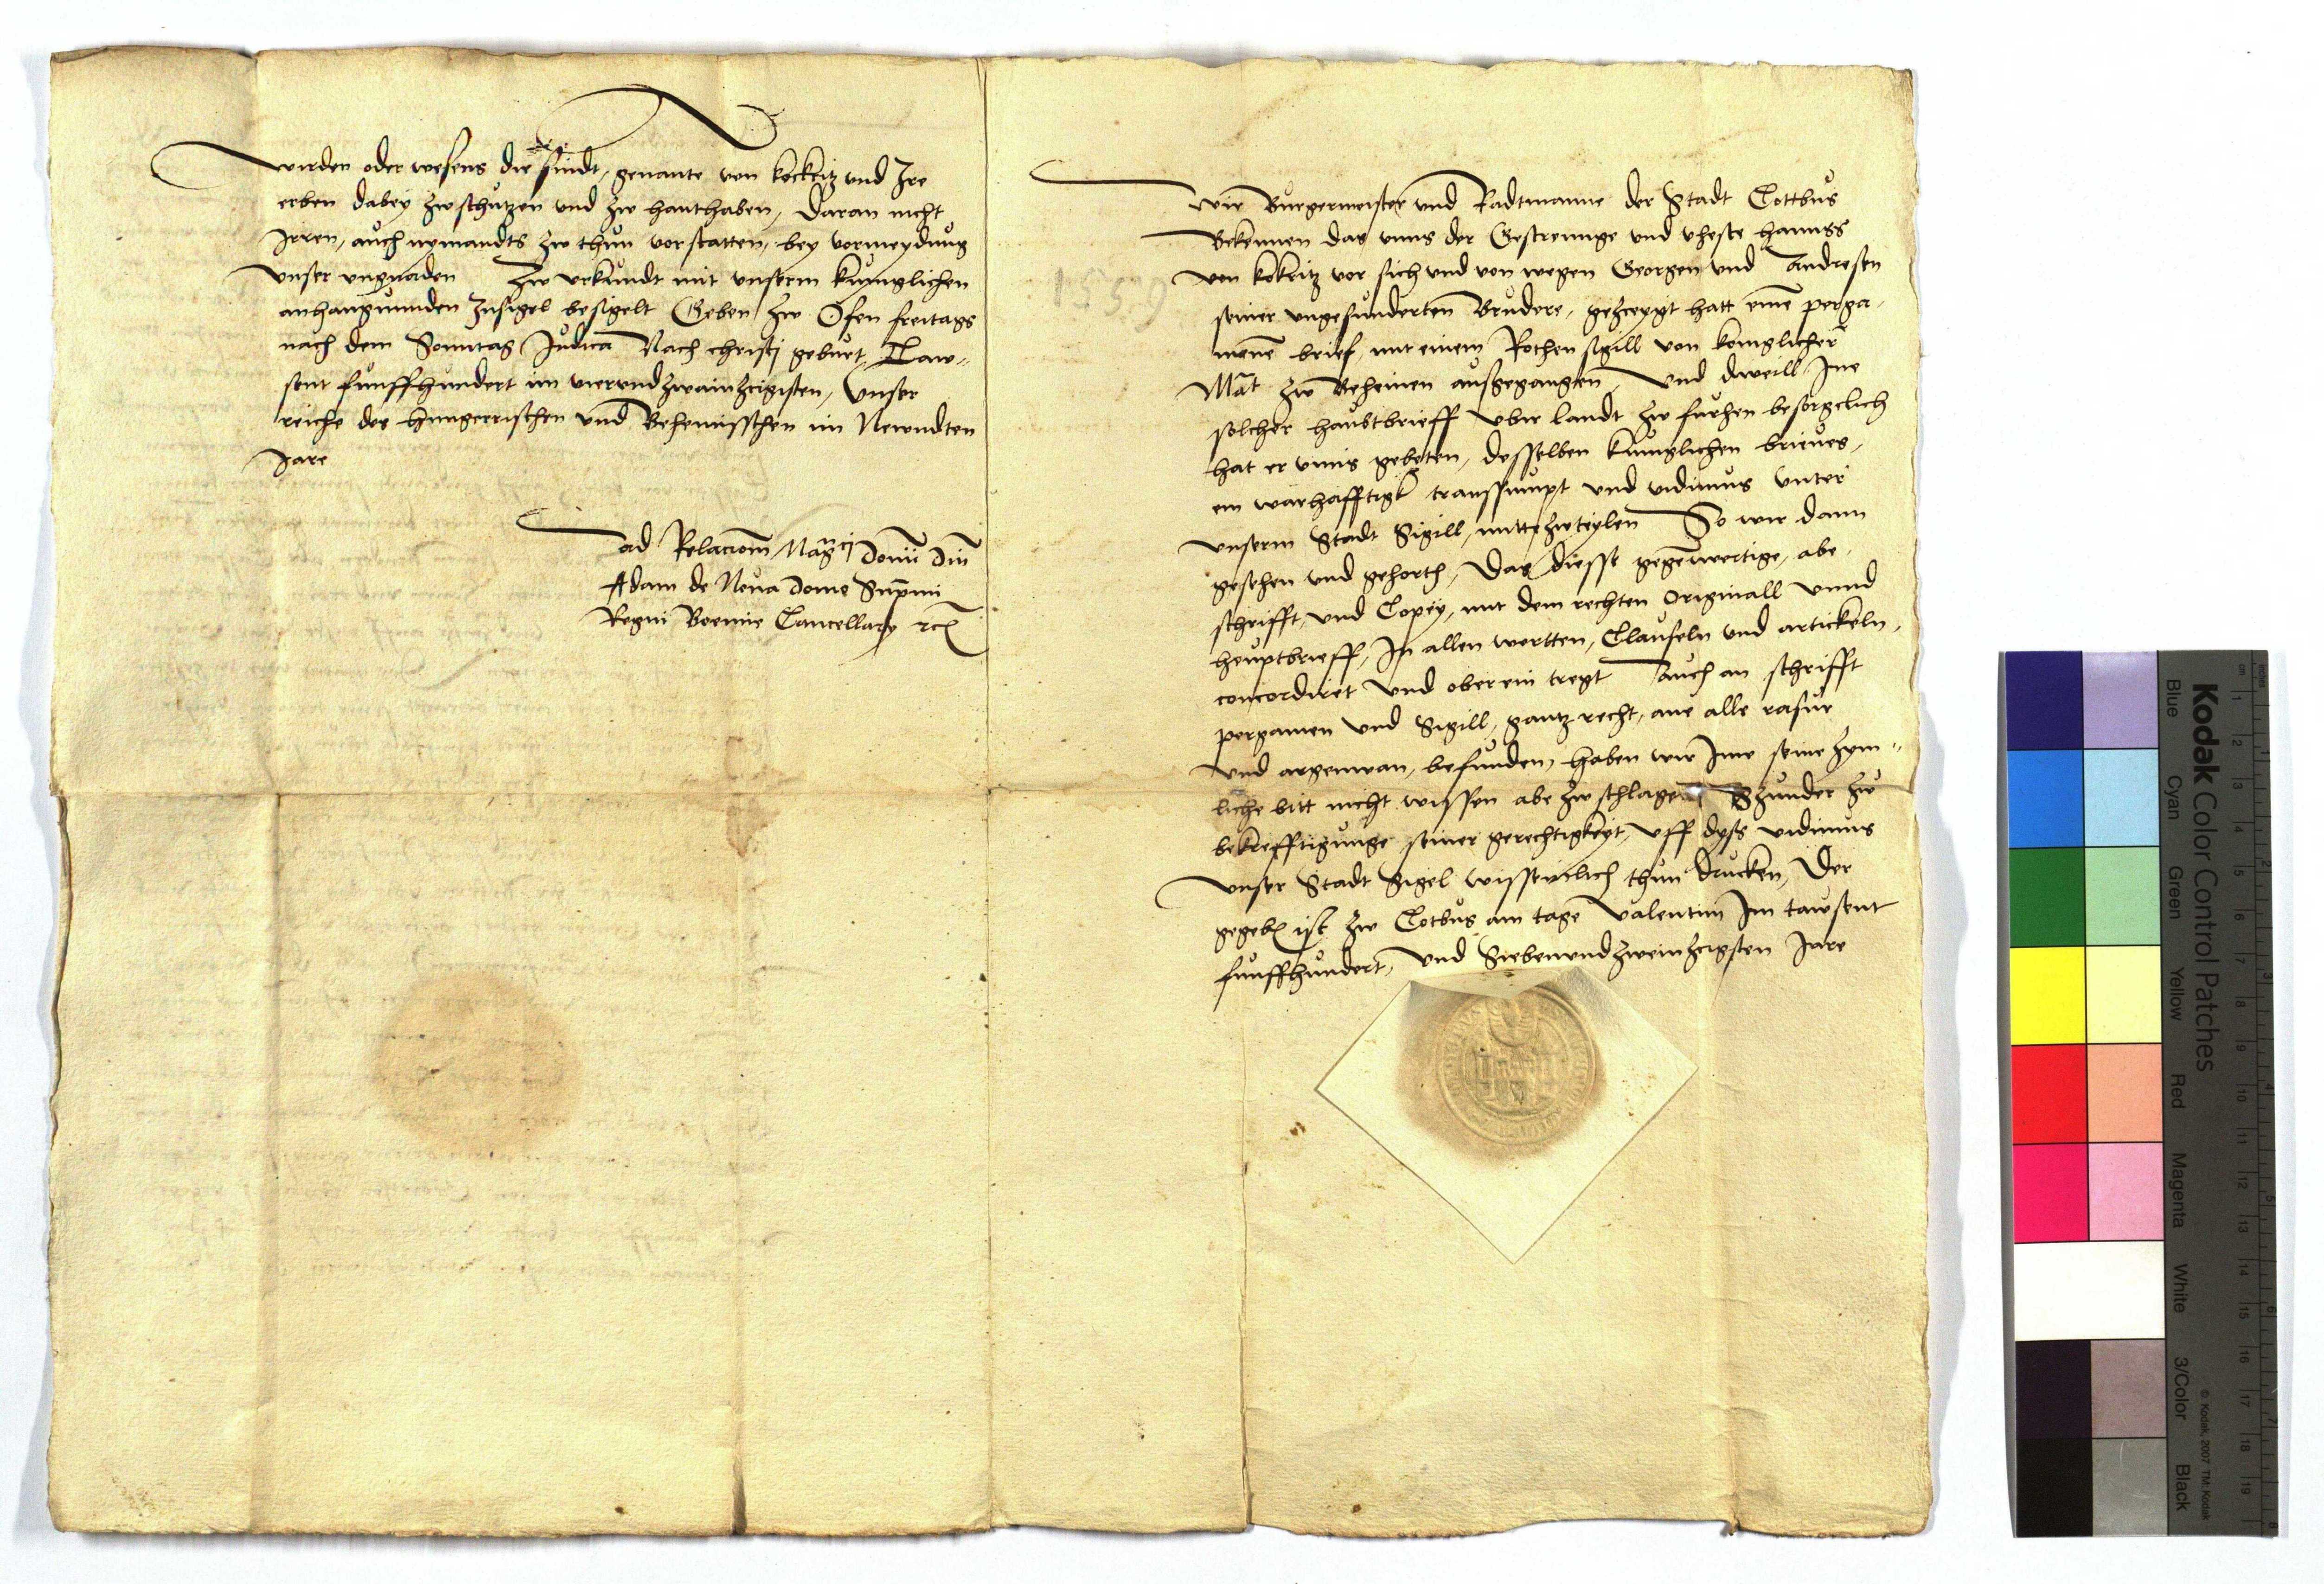 wirden oder wesens die sindt, genante von kockritz vnd Ire
erben dabey zw schutzen vnd zw hanthaben, Daran nicht
Irren, auch nymandts zw thun vorstatten, bey vormeydung
vnser vngnaden Zw vrkundt mit vnserm kunglichen
anhangunnden Insigel besigelt Geben zw Ofen freitags
nach dem Sonntag Judica Nach christj geburt, Taw„
sent funffhundert im viervndzwainzcigisten, Vnser
reiche des Hungerrischen vnd Behemisschen im Newndten
Jare
ad Relacionem Magcij Domi Din
Adam de Noua Domo Supmi
Regni Boemie Cancellarij rc
Wir Burgermeister vnd Radtmanne der Stadt Cottbus
Bekennen das vnns der Gestrennge vnd vheste hannss
von kokritz vor sich vnd von wegen Georgen vnd Andresen
seiner vngesunderten Brudere, gehzceygt hatt eine perga,
mene brief, mit einem Rothen sigill von koniglicher
Mat zw Beheimen außgegangen, Vnd dweill Ime
solcher haubtbrieff vber landt zw furhen besorgelich
hat er vnns gebeten, desselben kunglichen brieues,
ein warhafftigk transsumpt vnd vidimus vnter
vnserm Stadt Sigill, mittezwteylen So wir dann
gesehen vnd gehorth, Das diesse gegenwertige, abe,
schrifft, vnd Copey, mit dem rechten Originall vnnd
heuptbrieff, In allen wortten, Clauseln vnd artickeln,
concordiret vnd oberein tregt Auch an schrifft
pergamen vnd Sigill, gantz recht, ane alle rasur
vnd argenwan, befunden, haben wir Ime seine zym„
liche bitt nicht wissen abe zw schlagen Szunder zw
bekrefftigunge seiner gerechtigkeyt, vff dyss vidimus
vnser Stadt Sigel wissentlich thun drucken, Der
gegeb ist zw Cotbus am tage Valentini Im tawsent
funffhundert, vnd Siebenvndzweinzcigsten Jare
Kodak Color Control Patches
Blue Cyan Green Yellow Red Magenta White 3/Color Black
© Kodak, 2007 TM: Kodak
inches
cm 1 2 3 4 5 6 7 8 9 10 11 12 13 14 15 16 17 18 19